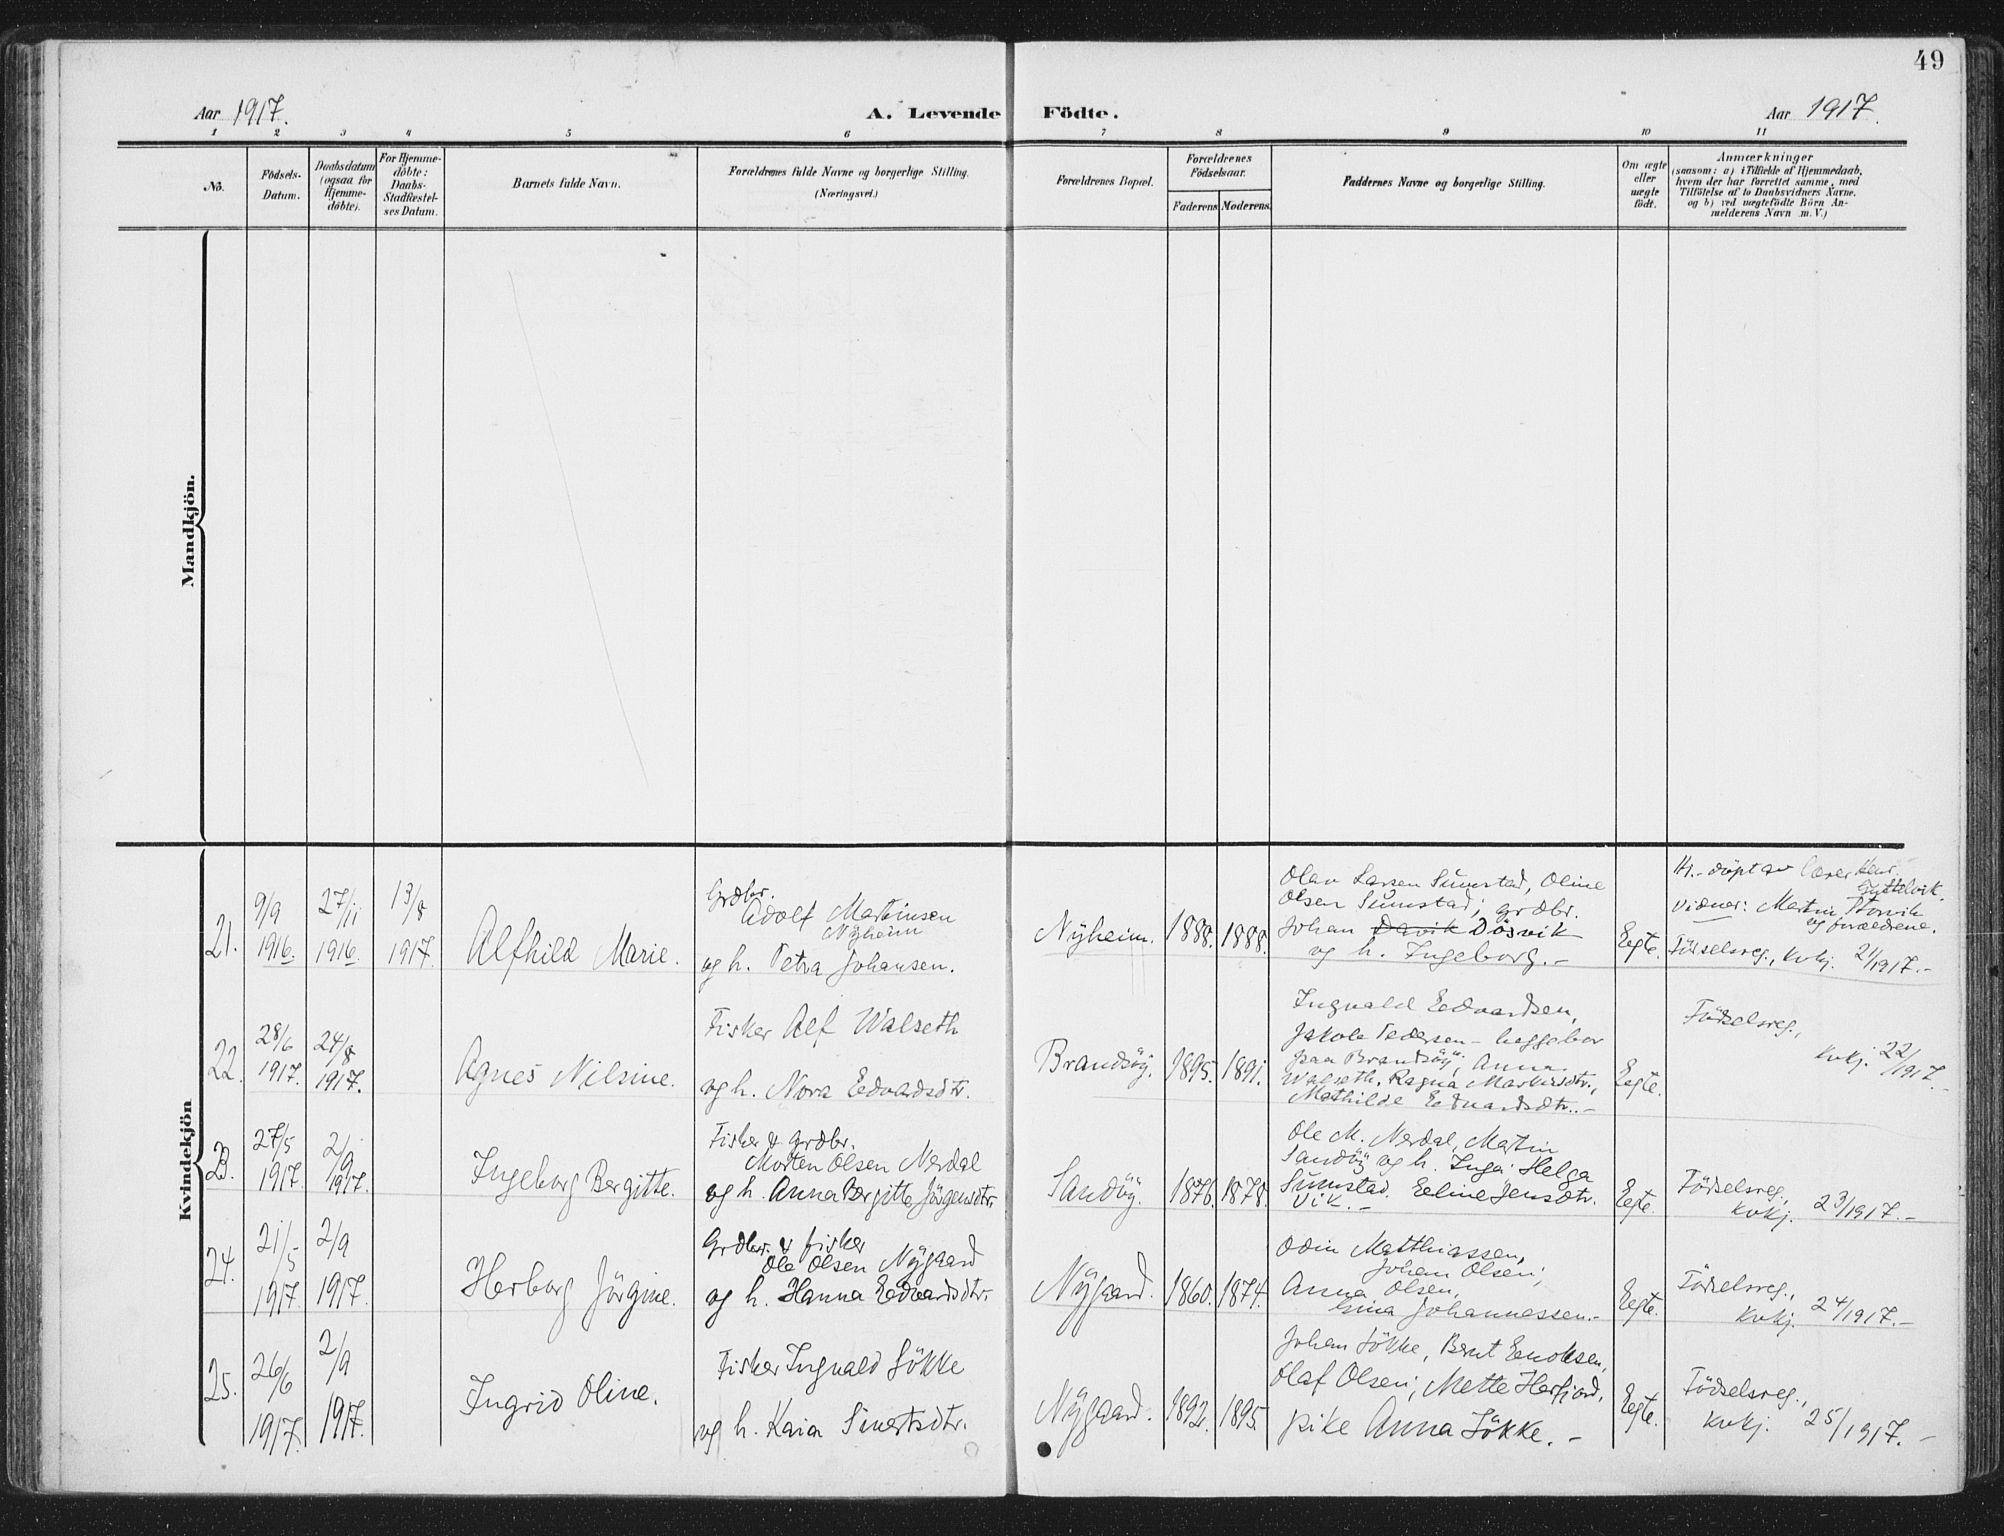 49
Aar 1917.
A. Levende Födte.
Aar 1917.
1 2 3 4 5 6 7 8 9 10 11
No.
Födsels-
Datum.
Daabsdatum
(ogsaa for
Hjemme-
döbte).
For Hjemme-
döbte:
Daabs-
Stadfæstel-
ses Datum.
Barnets fulde Navn.
Forældrenes fulde Navne og borgerlige Stilling.
(Næringsvei.)
Forældrenes Bopæl.
Forældrenes
Födselsaar.
Faderens. Moderens.
Faddernes Navne og borgerlige Stilling.
Om ægte
eller
uægte
födt.
Anmærkninger
(saasom: a) i Tilfælde af Hjemmedaab,
hvem der har forrettet samme, med
Tilföielse af to Daabsvidners Navne.
og b) ved uægtefödte Börn An-
melderens Navn m. V.)
Mandkjön.
Kvindekjön
21.
9/9
1916
27/11
1916
13/8
1917.
Alfhild Marie.
Grdbr.
Adolf Martinsen
Nyheim
og h. Petra Johansen.
Nyheim.
1888.
1888.
Olav Larsen Sumstad, Oline
Olsen Sumstad; grdbr.
Johan Davik Dösvik
og h. Ingeborg.-
Egte.
Hj.-döpt av lærer
Vidner: Martin
og forældrene.
Födselsreg., kvkj. 21/1917.-
22.
28/6
1917.
24/8
1917.
Agnes Nilsine.
Fisker Alf Walseth
og h. Nora Edvardsdtr.
Brandsöy.
1895.
1891.
Ingvald Edvardsen,
Jakob Pedersen - begge bor
paa Brandsöy; Anna
Walseth, Ragna Martinsdtr.,
Mathilde Edvardsdtr..-
Egte.
Födselsreg.,
kvkj. 22/1917.-
23.
27/5
1917.
2/9
1917.
Ingeborg Bergitte.
Fisker & grdbr.
Morten Olsen Nerdal
og h. Anna Bergitte Jörgensdtr.
Sandöy.
1876.
1878.
Ole M. Nerdal, Martin
Sandöy og h. Inga; Helga
Sumstad. Eline Jensdtr.
Vik.-
Egte.
Födselsreg.,
kvkj. 23/1917.-
24.
21/5
1917.
2/9
1917.
Herborg Jörgine.
Grdbr. & fisker
Ole Olsen Nygaard
og h. Hanna Edvardsdtr.
Nygaard.
1860.
1874.
Odin Matthiassen,
Johan Olsen;
Anna Olsen,
Gina Johannessen.-
Egte.
Födselsreg.,
kvkj. 24/1917.-
25.
26/6
1917.
2/9
1917.
Ingrid Oline.
Fisker Ingvald Jökke
og h. Kaia Sivertsdtr.
Nygaard.
1892.
1895.
Johan Jökke, Bernt Enoksen,
Olaf Olsen; Mette Herfjord,
pike Anna Jökke.-
Egte.
Födselsreg.,
kvkj. 25/1917.-